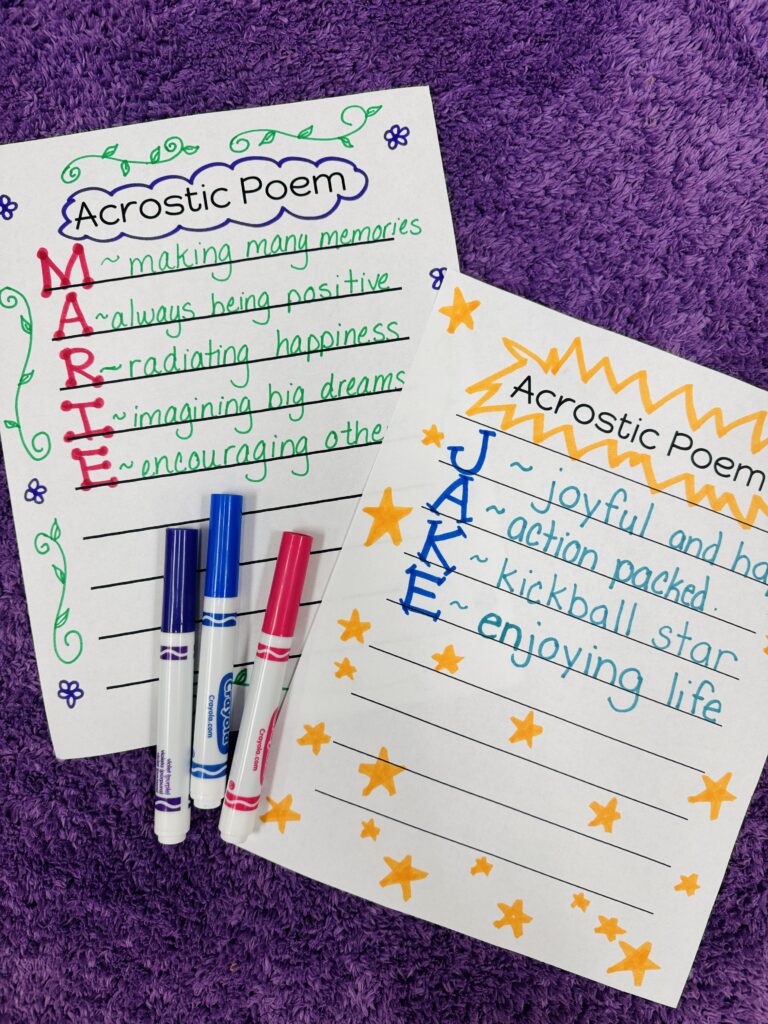 Acrostic Poem
M ~ making many memories
A ~ always being positive
R ~ radiating happiness
I ~ imagining big dreams
E ~ encouraging othe
Acrostic Poem
J ~ joyful and ha
A ~ action packed.
K ~ kickball star
E ~ enjoying life
Crayola
Crayola.com
Crayola.com